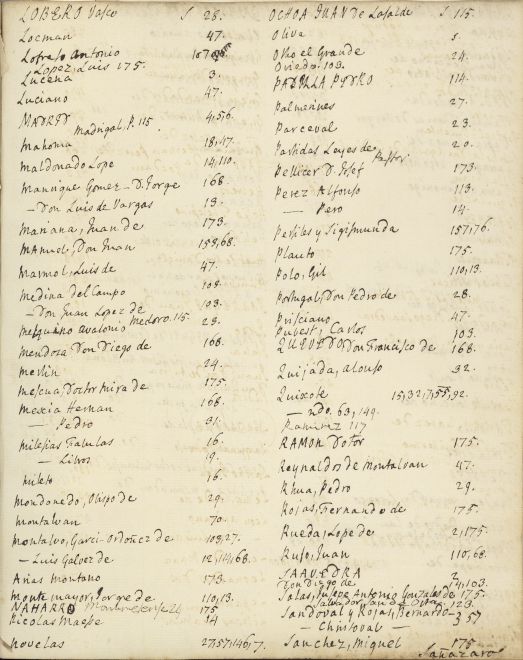 LOBERO Vasco S 28.
Locman 47.
Lofraso Antonio 107
Lopez, Luis 175.
Lucena 3.
Luciano 47.
MADRID 4,5,6.
Madrigal, P. 115
Mahoma 18,47.
Maldonado Lope 14,110.
Manrique Gomez - D. Jorge 168
— Don Luis de Vargas 13.
Mariana, Juan de 173.
Manuel, Don Juan 158,68.
Marmol, Luis de 47.
Medina del Campo 108.
— Don Juan Lopez de 103.
Mesquino avalonio Medoro. 115. 23.
Mendoza Don Diego de 168.
Merlin 24.
Mescua, Doctor Mira de 175.
Mexia Hernan 168.
— Pedro 31.
Milesias Fabulas 16.
— Libros 19.
Mileto 16.
Mondonedo, Obispo de 29.
Montalvan 70.
Montalvo, Garci Ordoñez de 108,27.
— Luis Galvez de 12,14,68.
Arias Montano 173.
Montemayor, Jorge de 110,13.
NAHARRO 175
Nicolas Maese 14
Novelas
OCHOA JUAN de Lasalde S 115.
Oliva 5.
Otho el Grande 24.
Oviedo. 103.
PADILLA PEDRO 114.
Palmerines 27.
Parceval 23.
Partidas Leyes de 20.
Pastor
Pellicer D. Josef 173.
Perez Alfonso 113.
— Pero 14.
Persiles y Sigismunda 157,76.
Plauto 175.
Polo, Gil 110,13.
Portugal, Don Pedro de 28.
Prisciano 47.
Pubest, Carlos 103.
QUEVEDO Don Francisco de 168.
Quijada, Alonso 32.
Quixote 15,32,7,55,92.
— ado. 63,149.
Ramirez 117
RAMON Dotor 175.
Reynaldos de Montalvan 47.
Rhua, Pedro 29.
Rojas, Fernando de 175.
Rueda, Lope de 2,175.
Rufo, Juan 110,68.
SAAVEDRA 2,
Don Diego de 4,103.
Salas, Josepe Antonio Gonzalez de 175.
123.
Sandoval y Rojas, Bernardo 3 57
— Christoval
Sanchez, Miguel 175
Sañazaro